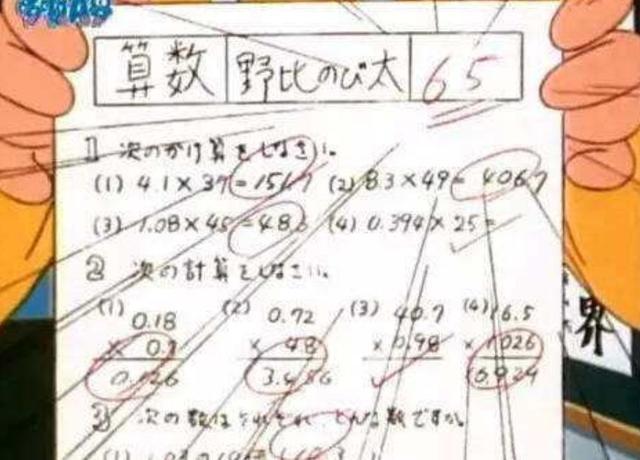 算数 野比のび太 65
1 次のかけ算をしなさい。
(1) 4.1×37=151.7 (2) 8.3×49=406.7
(3) 1.08×45=48.6 (4) 0.394×25=
2 次の計算をしなさい。
(1) (2) (3) (4)
0.18 0.72 40.7 16.5
× × 48 × 0.98 ×
0.126 3.456
3 次の数はそれぞれ、どんな数ですか。
界